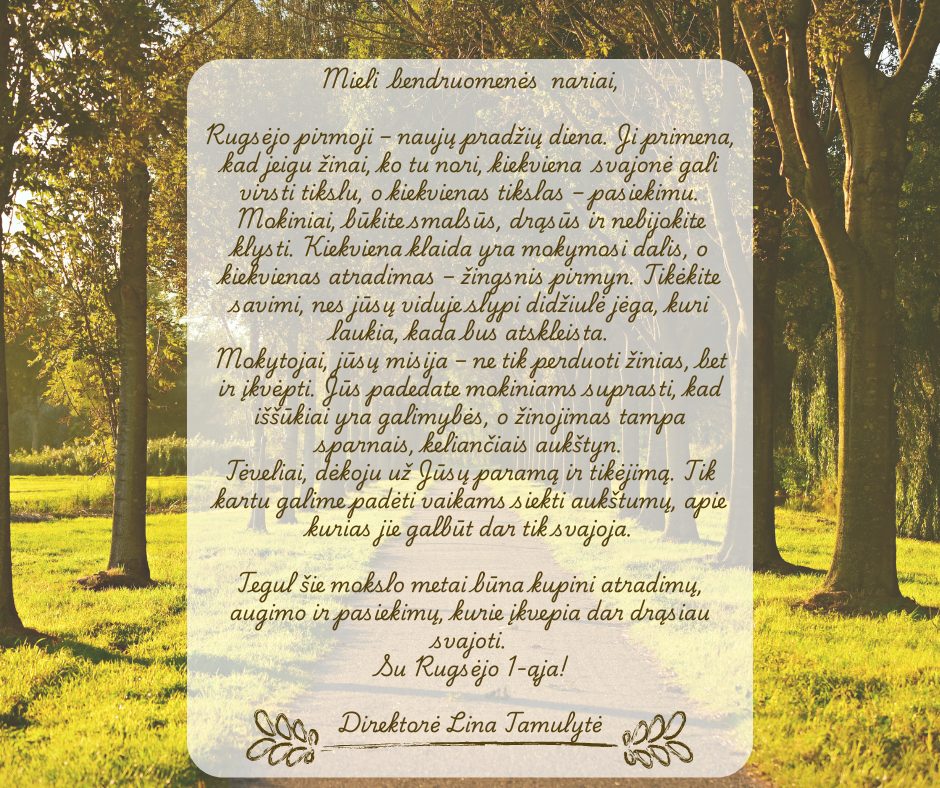 Mieli bendruomenės nariai,
Rugsėjo pirmoji – naujų pradžių diena. Ji primena,
kad jeigu žinai, ko tu nori, kiekviena svajonė gali
virsti tikslu, o kiekvienas tikslas – pasiekimu.
Mokiniai, būkite smalsūs, drąsūs ir nebijokite
klysti. Kiekviena klaida yra mokymosi dalis, o
kiekvienas atradimas – žingsnis pirmyn. Tikėkite
savimi, nes jūsų viduje slypi didžiulė jėga, kuri
laukia, kada bus atskleista.
Mokytojai, jūsų misija – ne tik perduoti žinias, bet
ir įkvėpti. Jūs padedate mokiniams suprasti, kad
iššūkiai yra galimybės, o žinojimas tampa
sparnais, keliančiais aukštyn.
Tėveliai, dėkoju už Jūsų paramą ir tikėjimą. Tik
kartu galime padėti vaikams siekti aukštumų, apie
kurias jie galbūt dar tik svajoja.
Tegul šie mokslo metai būna kupini atradimų,
augimo ir pasiekimų, kurie įkvepia dar drąsiau
svajoti.
Su Rugsėjo 1-ąja!
Direktorė Lina Tamulytė